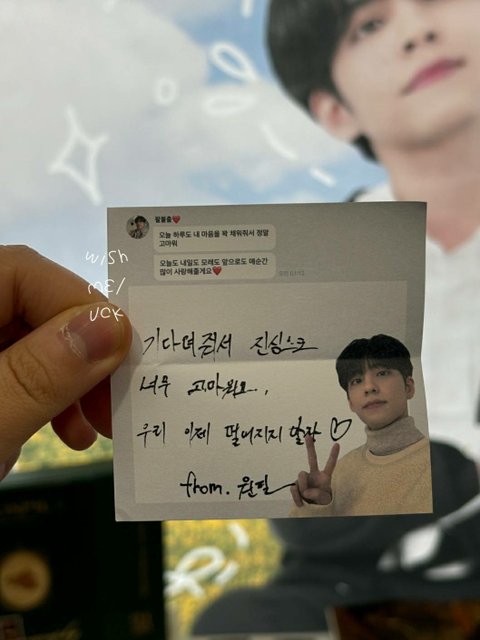 wish
me/
uck
팔불출❤️
오늘 하루도 내 마음을 꽉 채워줘서 정말
고마워
오늘도 내일도 모레도 앞으로도 매순간
많이 사랑해줄게요❤️
기다려줘서 진심으로
너무 고마워요,
우리 이제 떨어지지 말자♡
from. 원필